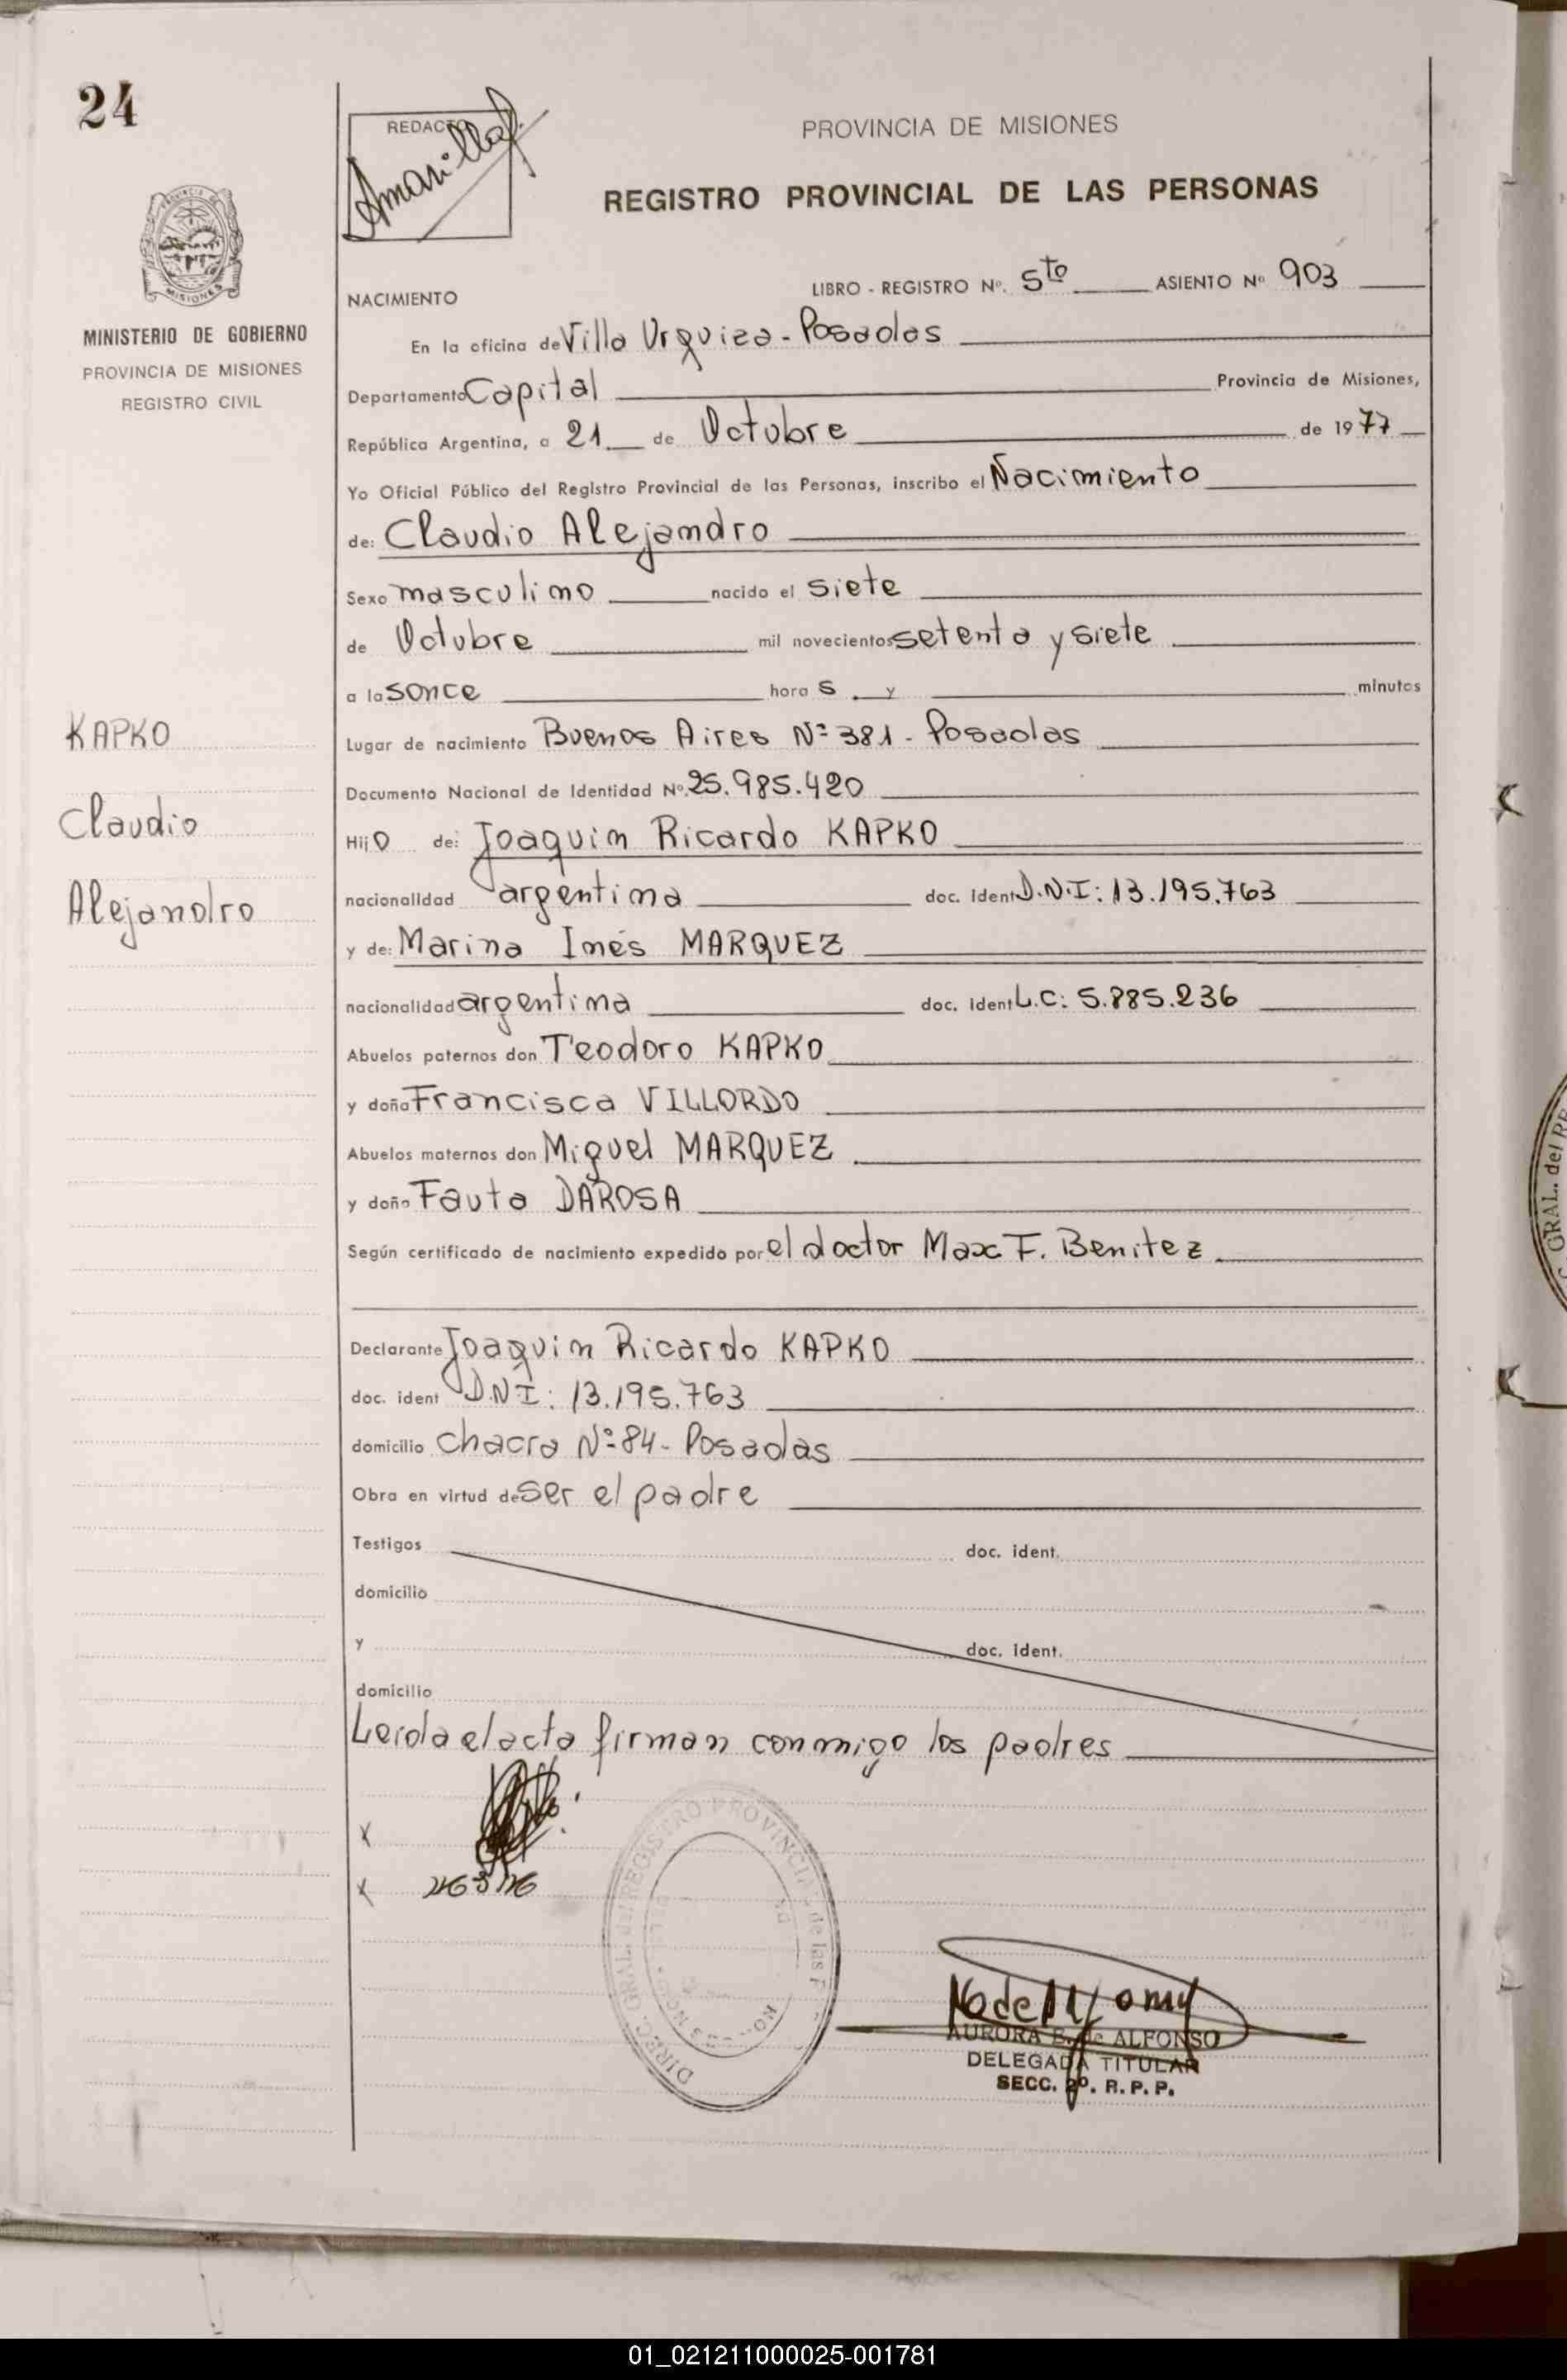 24
REDACTO
PROVINCIA DE MISIONES
REGISTRO PROVINCIAL DE LAS PERSONAS
MISIONES
MINISTERIO DE GOBIERNO
PROVINCIA DE MISIONES
REGISTRO CIVIL
LIBRO - REGISTRO Nº. 5to ASIENTO Nº 903
NACIMIENTO
En la oficina de Villa Urquiza - Posadas
Departamento Capital Provincia de Misiones,
República Argentina, a 21 de Octubre de 1977
Yo Oficial Público del Registro Provincial de las Personas, inscribo el Nacimiento
de: Claudio Alejandro
Sexo masculino nacido el siete
de Octubre mil novecientos setenta y siete
a las once hora s y minutos
KAPKO
Lugar de nacimiento Buenos Aires Nº 381 - Posadas
Documento Nacional de Identidad Nº. 25.985.420
Claudio
Hijo de: Joaquin Ricardo KAPKO
Alejandro
nacionalidad argentina doc. ident D.N.I: 13.195.763
y de: Marina Inés MARQUEZ
nacionalidad argentina doc. ident L.C: 5.885.236
Abuelos paternos don Teodoro KAPKO
y doña Francisca VILLORDO
Abuelos maternos don Miguel MARQUEZ
y doña Fauta DAROSA
Según certificado de nacimiento expedido por el doctor Max F. Benitez
Declarante Joaquin Ricardo KAPKO
doc. ident D.N.I: 13.195.763
domicilio chacra Nº 84 - Posadas
Obra en virtud de ser el padre
Testigos doc. ident.
domicilio
y doc. ident.
domicilio
Leida el acta firman conmigo los padres
X
X
DIREC. GRAL. del REGISTRO PROVINCIAL de las P
AURORA E. de ALFONSO
DELEGADA TITULAR
SECC. 2º. R. P. P.
GRAL. del RE
01_021211000025-001781